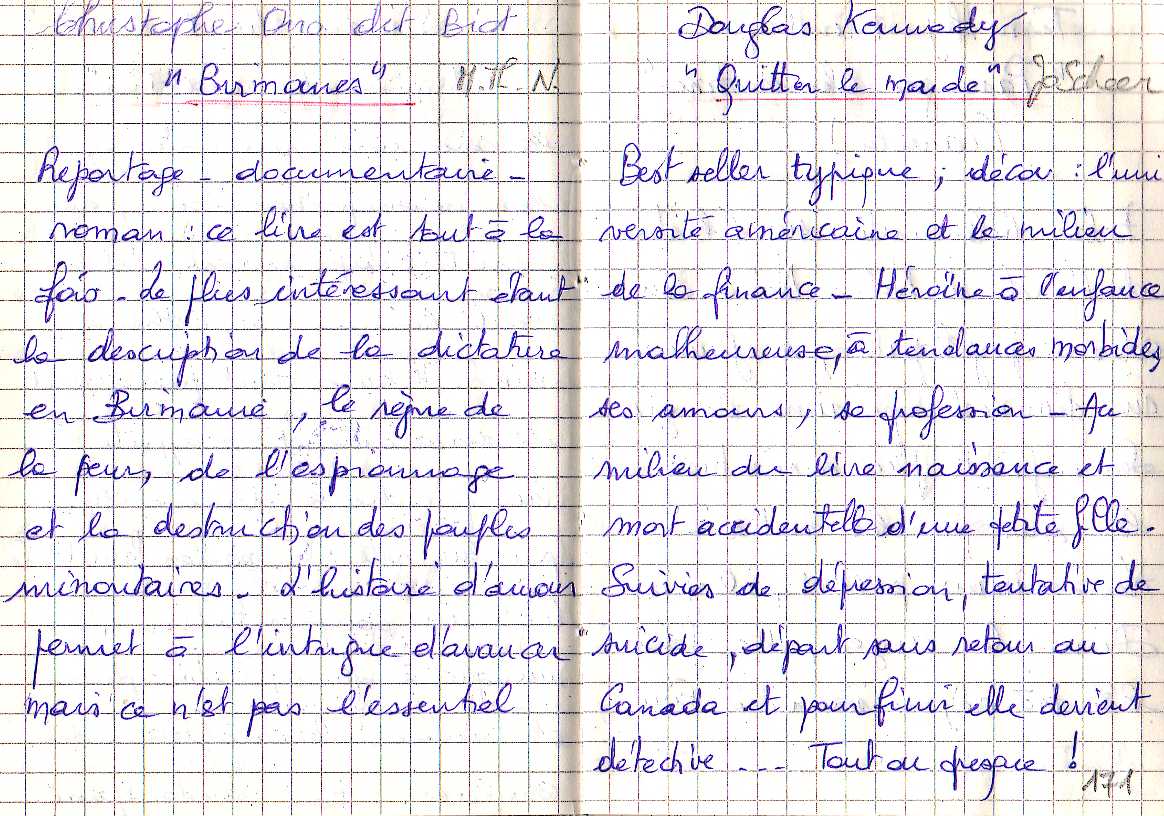 Christophe Ono dit Biot
"Birmanes" M.Th. N.
Reportage - documentaire -
roman : ce livre est tout à la
fois - Le plus intéressant étant
la description de la dictature
en Birmanie, le règne de
la peur, de l'espionnage
et la destruction des peuples
minoritaires. L'histoire d'amour
permet à l'intrigue d'avancer
mais ce n'est pas l'essentiel
Douglas Kennedy
"Quitter le monde" Jo Scheer
Best seller typique ; décor : l'uni
versité américaine et le milieu
de la finance - Héroïne à l'enfance
malheureuse, à tendances morbides,
ses amours, sa profession - Au
milieu du livre naissance et
mort accidentelle d'une petite fille.
Suivies de dépression, tentative de
suicide, départ sans retour au
Canada et pour finir elle devient
détective --- Tout ou presque !
171